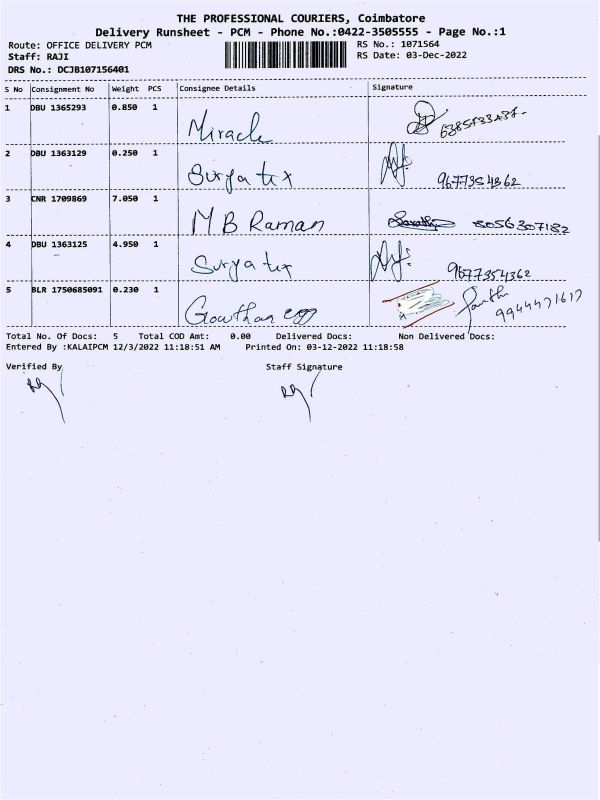 THE PROFESSIONAL COURIERS, Coimbatore
Delivery Runsheet - PCM - Phone No.:0422-3505555 - Page No.:1
Route: OFFICE DELIVERY PCM
RS No.: 1071564
Staff: RAJI
RS Date: 03-Dec-2022
DRS No.: DCJB107156401
S No Consignment No Weight PCS Consignee Details Signature
1 DBU 1365293 0.850 1 Miracle
2 DBU 1363129 0.250 1 Surya tex 9677354362
3 CNR 1709869 7.050 1 M B Raman 8056307182
4 DBU 1363125 4.950 1 Surya tex 9677354362
5 BLR 1750685091 0.230 1 Gowtham egg 9944471617
Total No. Of Docs: 5 Total COD Amt: 0.00 Delivered Docs: Non Delivered Docs:
Entered By :KALAIPCM 12/3/2022 11:18:51 AM Printed On: 03-12-2022 11:18:58
Verified By Staff Signature